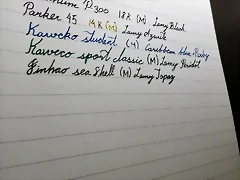 P300 18K (M) Lamy Black
Parker 45 14K (M) Lamy Azurite
Kawecko student (M) Caribbean blue
Kaweco sport classic (M) Lamy Peridot
Jinhao sea shell (M) Lamy Topaz